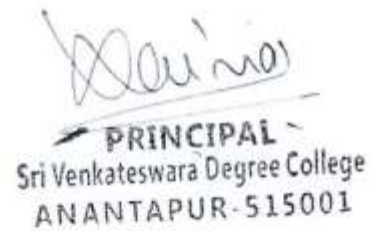 PRINCIPAL
Sri Venkateswara Degree College
ANANTAPUR-515001